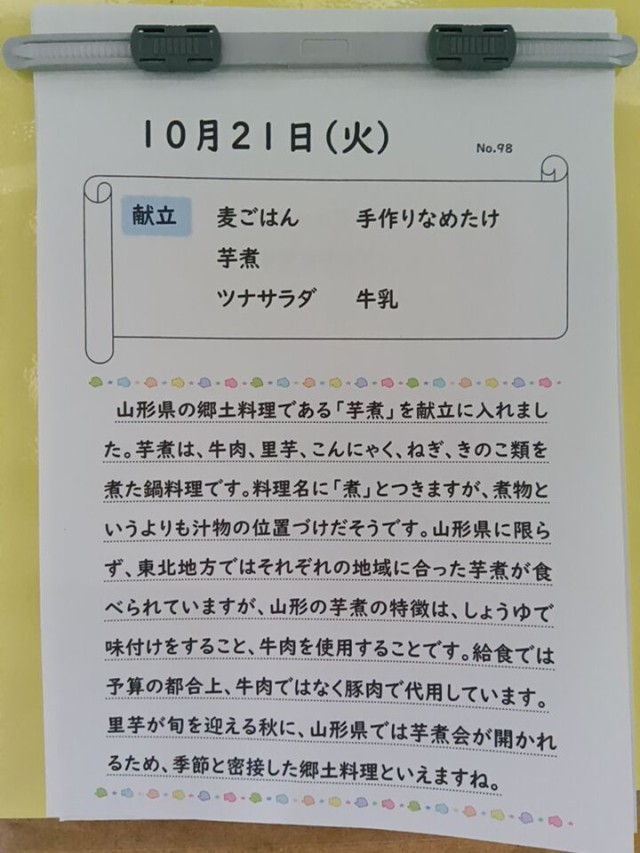 10月21日(火)
No.98
献立 麦ごはん 手作りなめたけ
芋煮
ツナサラダ 牛乳
山形県の郷土料理である「芋煮」を献立に入れまし
た。芋煮は、牛肉、里芋、こんにゃく、ねぎ、きのこ類を
煮た鍋料理です。料理名に「煮」とつきますが、煮物と
いうよりも汁物の位置づけだそうです。山形県に限ら
ず、東北地方ではそれぞれの地域に合った芋煮が食
べられていますが、山形の芋煮の特徴は、しょうゆで
味付けをすること、牛肉を使用することです。給食では
予算の都合上、牛肉ではなく豚肉で代用しています。
里芋が旬を迎える秋に、山形県では芋煮会が開かれ
るため、季節と密接した郷土料理といえますね。